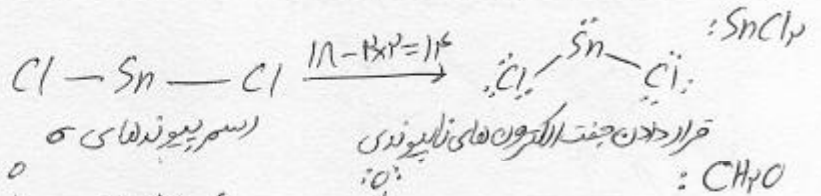 :SnCl۲
Cl — Sn — Cl ۱۸-۲×۲=۱۴ Cl Sn Cl
رسم پیوندهای σ قرار دادن جفت الکترون‌های ناپیوندی
O :O: : CH۲O